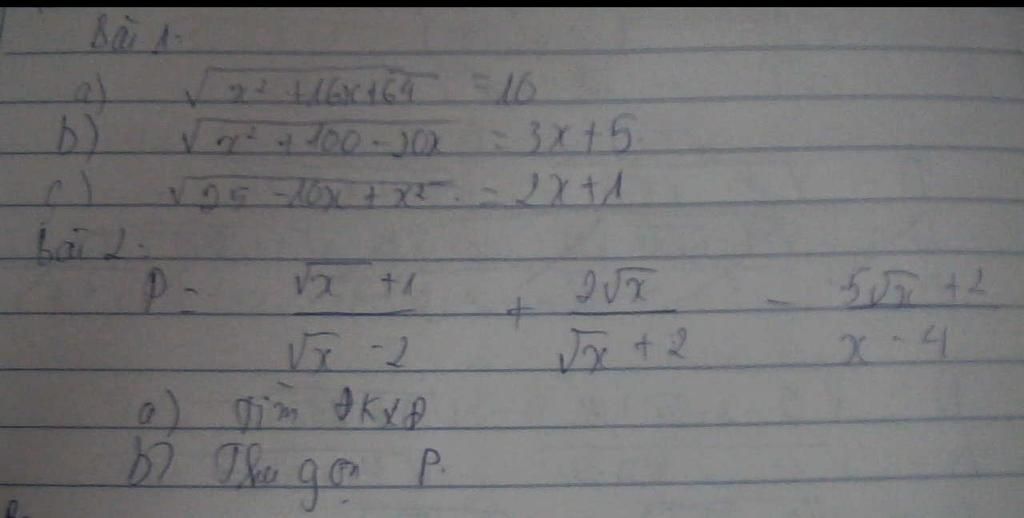 Bài 1:
a) √(x² + 16x + 64) = 10
b) √(x² + 100 - 20x) = 3x + 5
c) √(25 - 10x + x²) = 2x + 1
Bài 2:
P = (√x + 1)/(√x - 2) + (2√x)/(√x + 2) - (5√x + 2)/(x - 4)
a) Tìm ĐKXĐ
b) Thu gọn P.